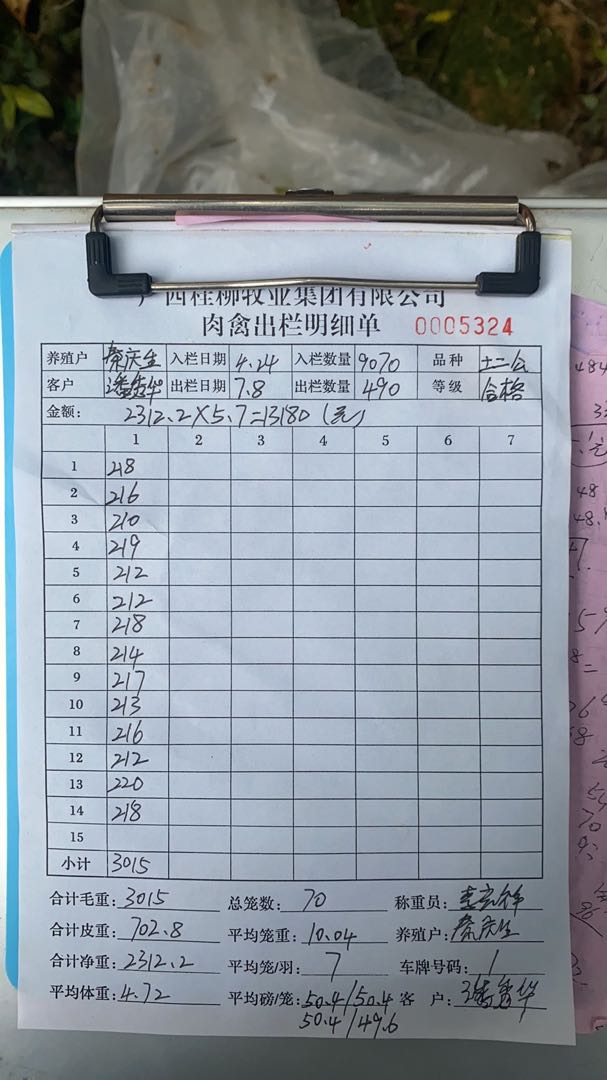 广西桂柳牧业集团有限公司
肉禽出栏明细单 0005324
养殖户 秦庆生 入栏日期 4.24 入栏数量 9070 品种 土二公
客户 出栏日期 7.8 出栏数量 490 等级 合格
金额: 2312.2×5.7=13180(元)
1 2 3 4 5 6 7
1 218
2 216
3 210
4 219
5 212
6 212
7 218
8 214
9 217
10 213
11 216
12 212
13 220
14 218
15
小计 3015
合计毛重: 3015 总笼数: 70 称重员:
合计皮重: 702.8 平均笼重: 10.04 养殖户: 秦庆生
合计净重: 2312.2 平均笼/羽: 7 车牌号码: 1
平均体重: 4.72 平均磅/笼: 50.4/50.4 客户:
50.4/49.6